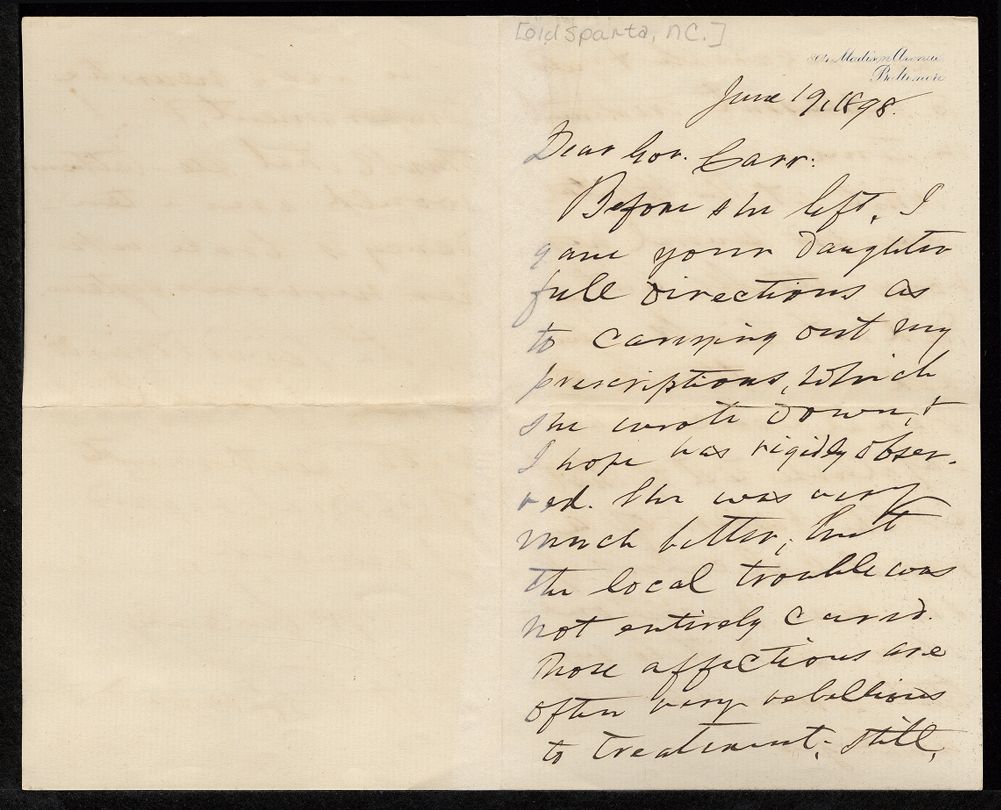 [old Sparta, NC.]
Madison Avenue
Baltimore
June 19, 1898.
Dear Gov. Carr:
Before she left, I
gave your daughter
full directions as
to carrying out my
prescriptions, which
she wrote down, &
I hope has rigidly obser-
ved. She was very
much better, but
the local trouble was
not entirely cured.
Those affections are
often very rebellious
to treatment; still,